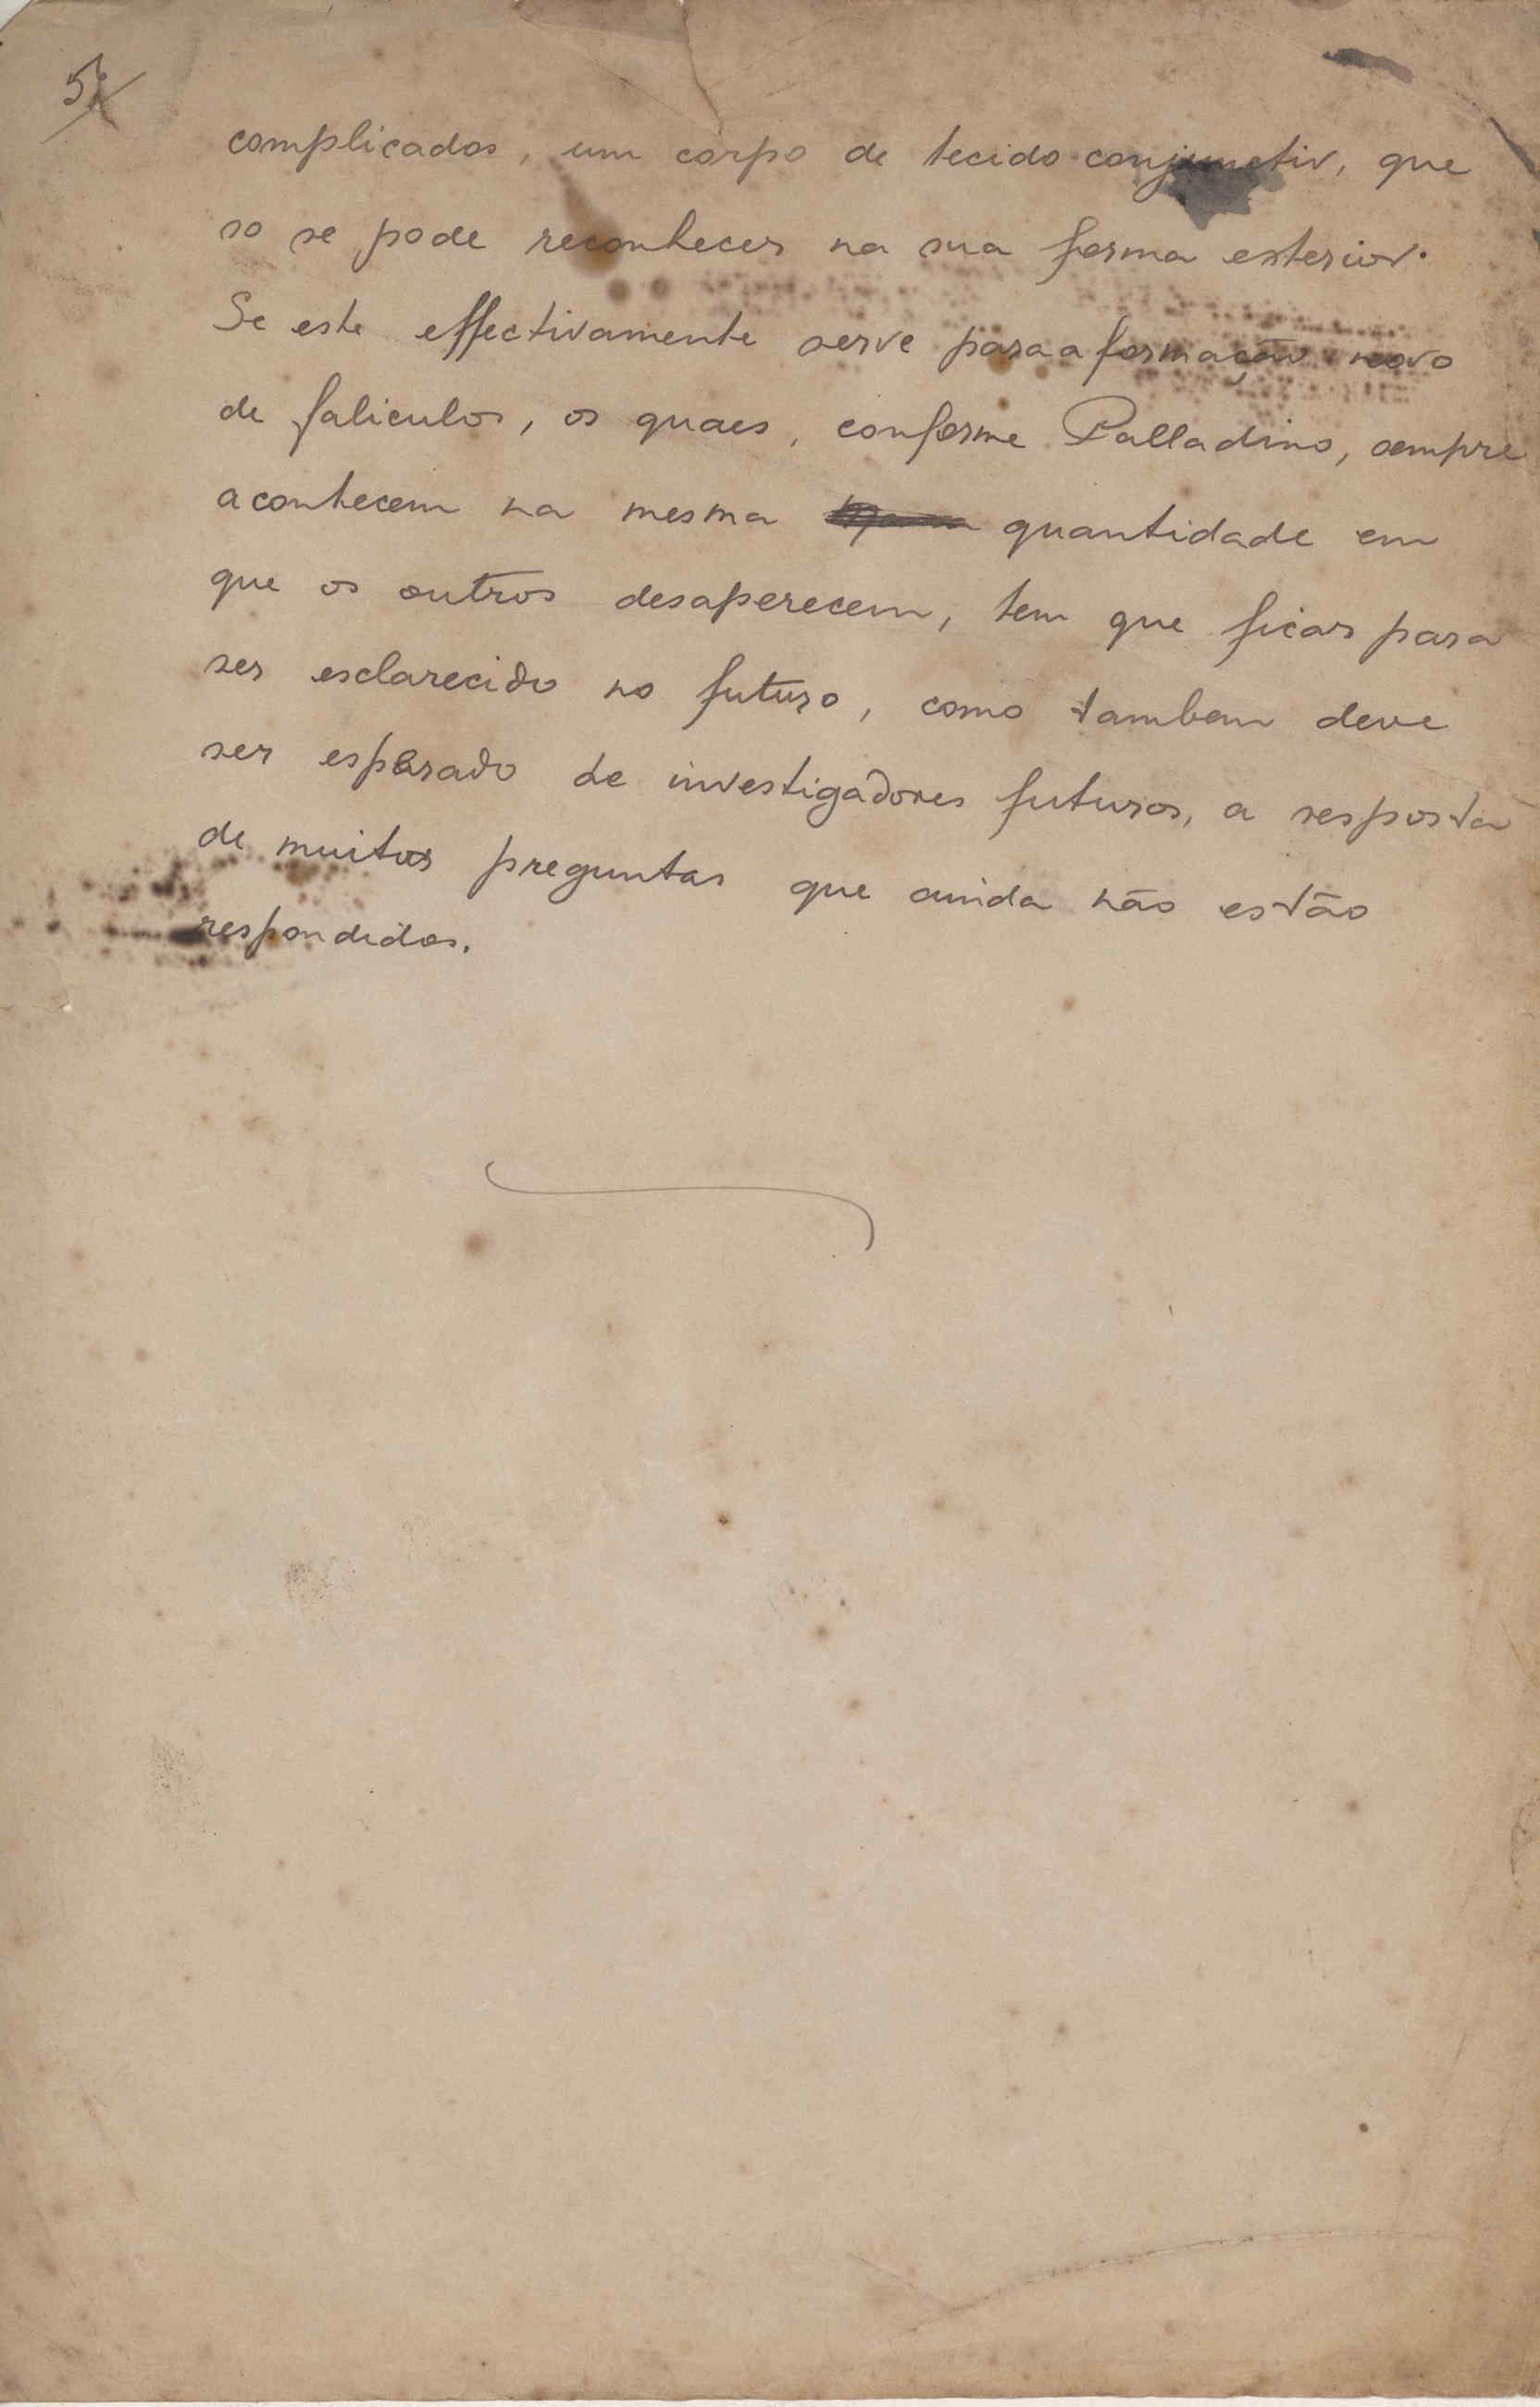 5
complicados, um corpo de tecido conjunctiv, que
so se pode reconhecer na sua forma exterior.
Se este effectivamente serve para a formação novo
de faliculos, os quaes, conforme Palladino, sempre
acontecem na mesma quantidade em
que os outros desaperecem, tem que ficar para
ser esclarecido no futuro, como tambem deve
ser esperado de investigadores futuros, a resposta
de muitas preguntas que ainda não estão
respondidas.